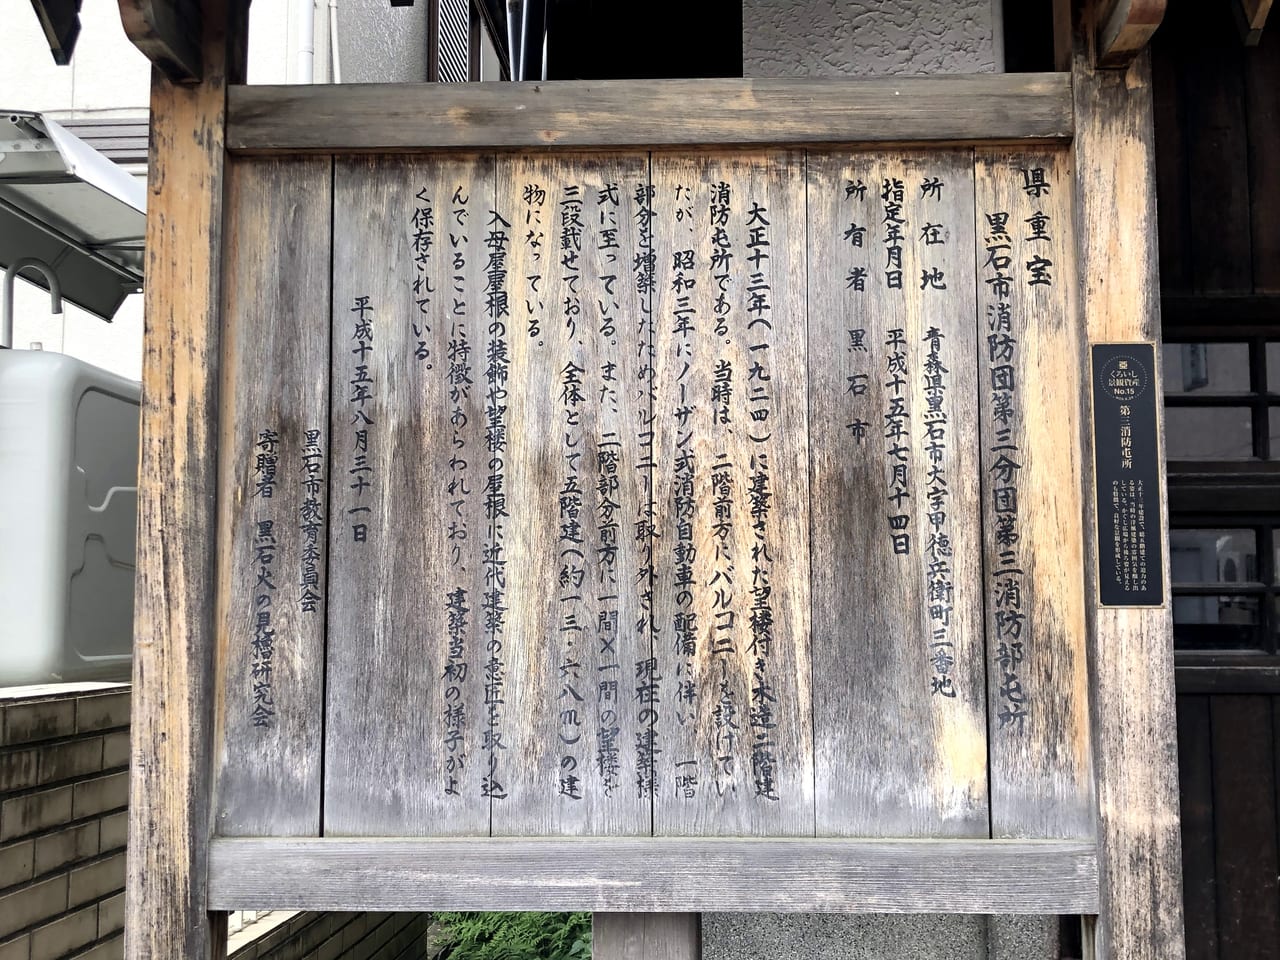 県重宝
黒石市消防団第三分団第三消防部屯所
所在地 青森県黒石市大字甲徳兵衛町三番地
指定年月日 平成十五年七月十四日
所有者 黒石市
大正十三年(一九二四)に建築された望楼付き木造二階建
消防屯所である。当時は、二階前方にバルコニーを設けてい
たが、昭和三年にノーザン式消防自動車の配備に伴い、一階
部分を増築したため、バルコニーは取り外され、現在の建築様
式に至っている。また、二階部分前方に一間×一間の望楼を
三段載せており、全体として五階建(約一三・六八m)の建
物になっている。
入母屋屋根の装飾や望楼の屋根に近代建築の意匠を取り込
んでいることに特徴があらわれており、建築当初の様子がよ
く保存されている。
平成十五年八月三十一日
黒石市教育委員会
寄贈者 黒石火の見櫓研究会
くろいし
景観資産
No.15
第三消防屯所